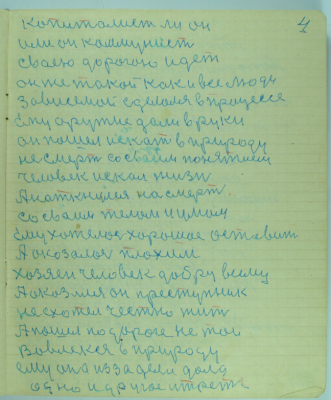 4
капиталист ли он
или он коммунист
своею дорогою идет
он не такой как и все люди
Зависемой сделался в процессе
Ему оружие дали в руки
он пошел искат в природу
не смерт со своим понятием
человек искал жизн
А наткнулся на смерт
со своим телом и умом
Ему хотелос хорошое оставит
А оказалос плохим
хозяен человек добру всему
А оказался он преступник
не схотел честно жит
А пошел по дороге не той
Вовлекся в природу
ему она из задели
одно и другое